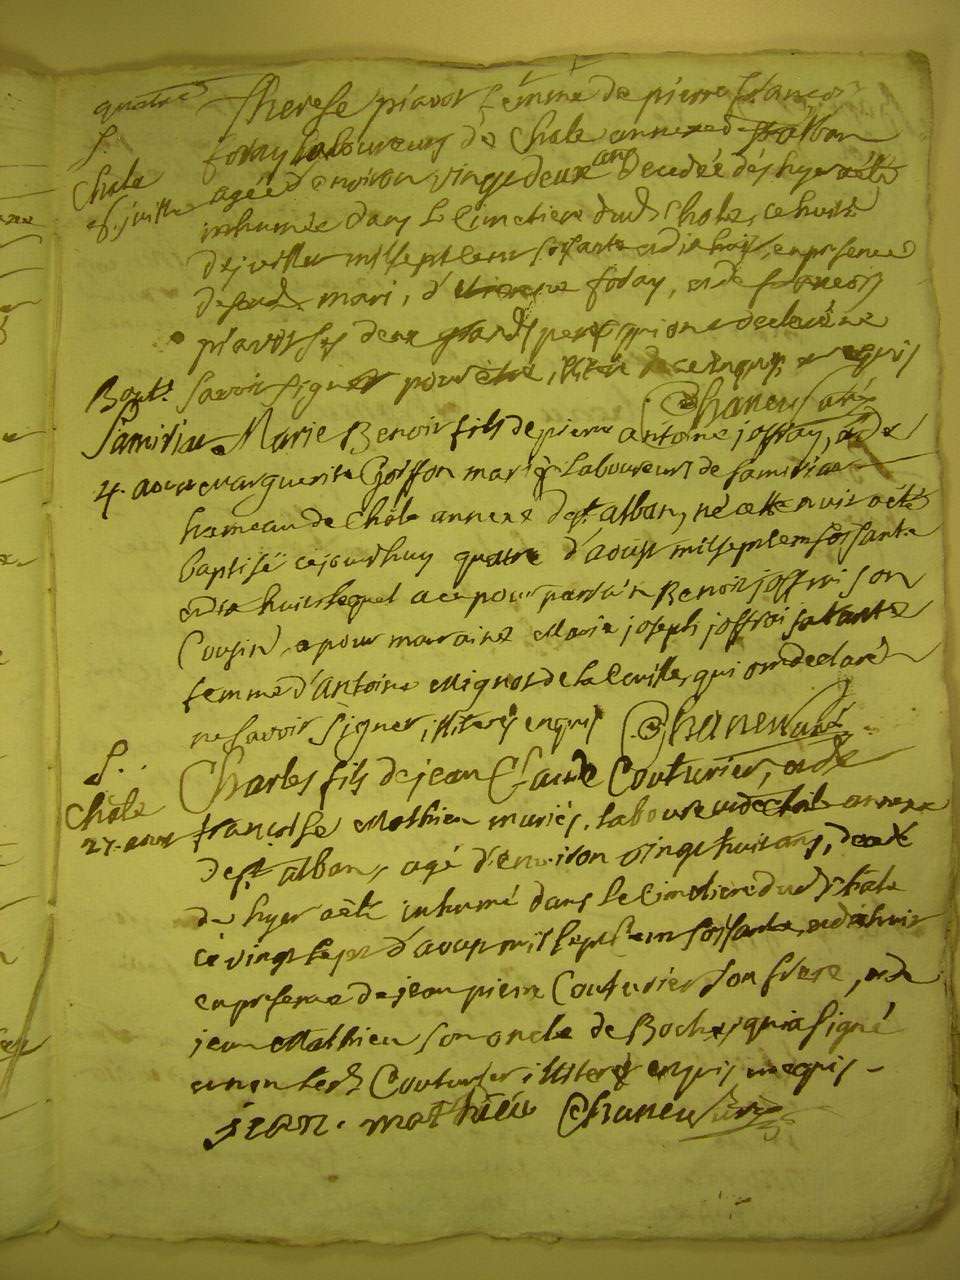 quatre
S.
Chole
8. juillet
Therese piavor femme de pierre françois
foray laboureurs de Chole annexe de st alban
agée d'environ vingt deux ans Decedée dés hyer a été
inhumée dans le Cimetiere dud. Chole, ce huit
de juillet mil sept cent soisante et dix huit, en presence
de sond. mari, d' foray, et de francois
piavor ses deux grands peres qui ont declaré ne
savoir signer pour être, illiterés de ce enquis et requis
Chaneu curé
Bapt.
Samiriau
4. aout
Marie Benoit fils de pierre antoine joffray, et de
marguerite Goiffon mariés laboureurs de Samiriau
hameau de Chole annexe de st. alban, né cette nuit a été
baptisé cejourdhuy quatre d'aoust mil sept cent soisante
et dix huit lequel a eu pour parrain Benoit joffrai son
Cousin, et pour marraine Marie joseph joffroi sa tante
femme d'Antoine Mignot de la Cuille, qui ont declaré
ne savoir signer, illiterés enquis Chaneu curé
S.
Chole
27. aout
Charles fils de jean Claude Couturier, et de
françoise Mathieu mariés, laboureurs de Chole annexe
de st. alban, agé d'environ vingt huit ans, decedé
de hyer a été inhumé dans le Cimetiere dud. Chole
ce vingt sept d'aoust mil sept cent soisante, et dix huit
en presence de jean pierre Couturier son frere, et de
jean Mathieu son oncle de Boches qui a signé
et non led. Couturier illiteré enquis et requis -
jean. mathieu Chaneu curé